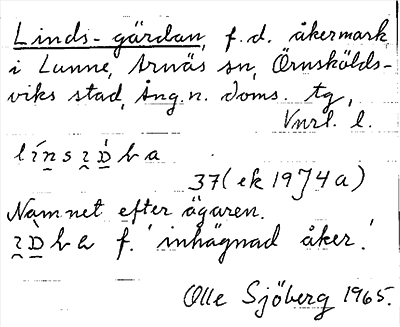 Linds-gärdan, f.d. åkermark
i Lunne, Arnäs sn, Örnskölds-
viks stad, Ång.n. doms. tg,
Vnrl. l.
37 (ek 19J4a)
Namnet efter ägaren.
f. 'inhägnad åker'.
Olle Sjöberg 1965.